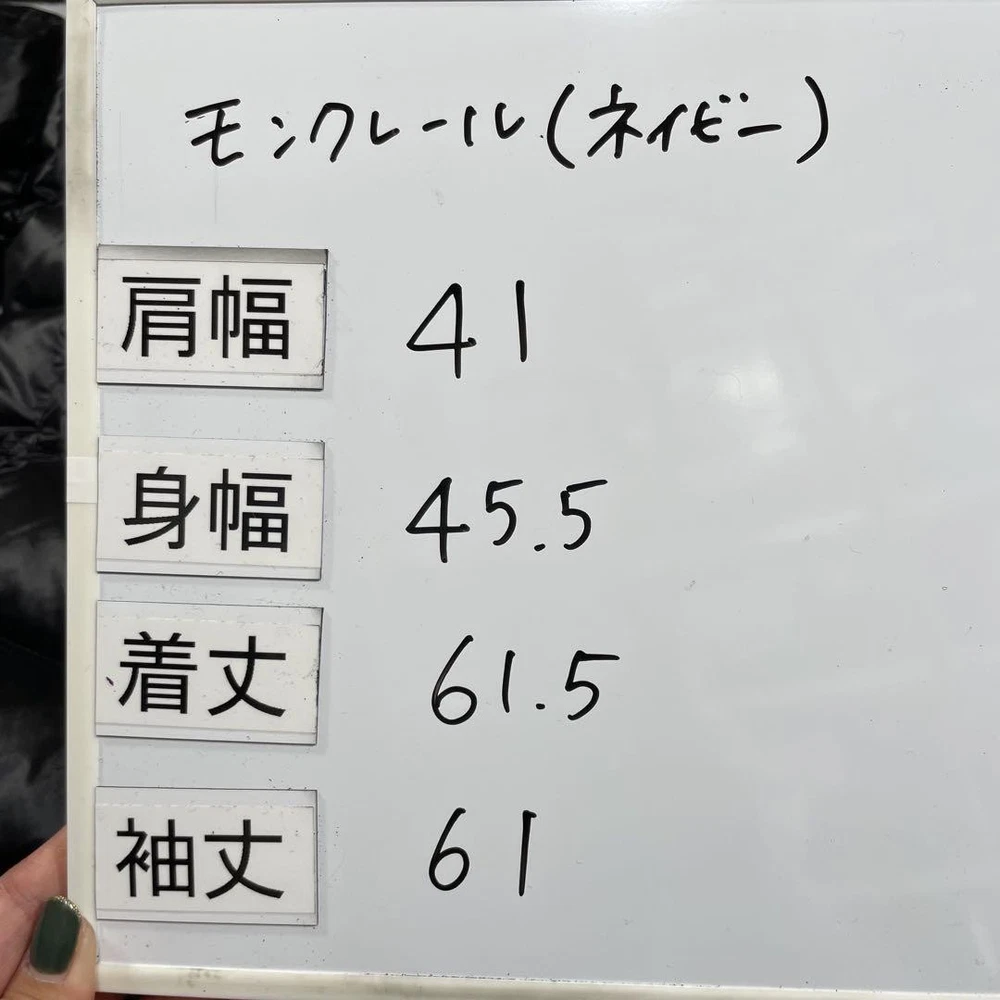 モンクレール(ネイビー)
肩幅 41
身幅 45.5
着丈 61.5
袖丈 61